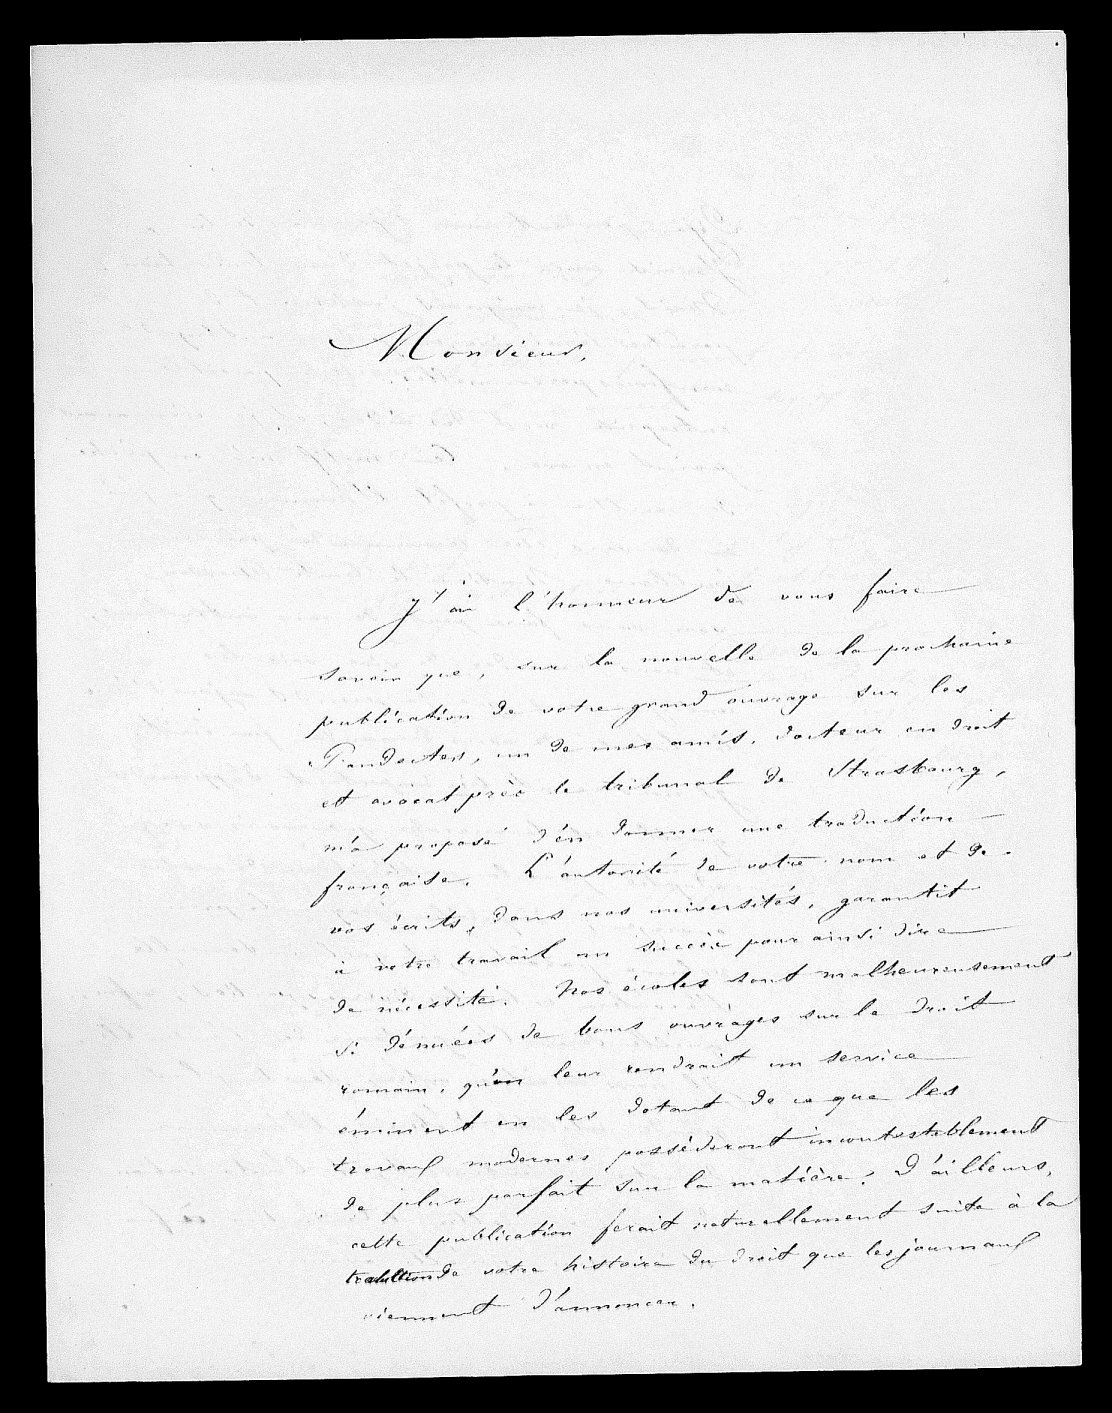 Monsieur,
J'ai l'honneur de vous faire
savoir que, sur la nouvelle de la prochaine
publication de votre grand ouvrage sur les
Pandectes, un de mes amis, docteur en droit
et avocat près le tribunal de Strasbourg,
m'a proposé d'en donner une traduction
française. L'autorité de votre nom et de
vos écrits, dans nos universités, garantit
à votre travail un succès pour ainsi dire
de nécessité. Nos écoles sont malheureusement
si dénuées de bons ouvrages sur le droit
romain, qu'on leur rendrait un service
éminent en les dotant de ce que les
travaux modernes possèderont incontestablement
de plus parfait sur la matière. D'ailleurs,
cette publication ferait naturellement suite à la
traduction de votre histoire du droit que les journaux
viennent d'annoncer.